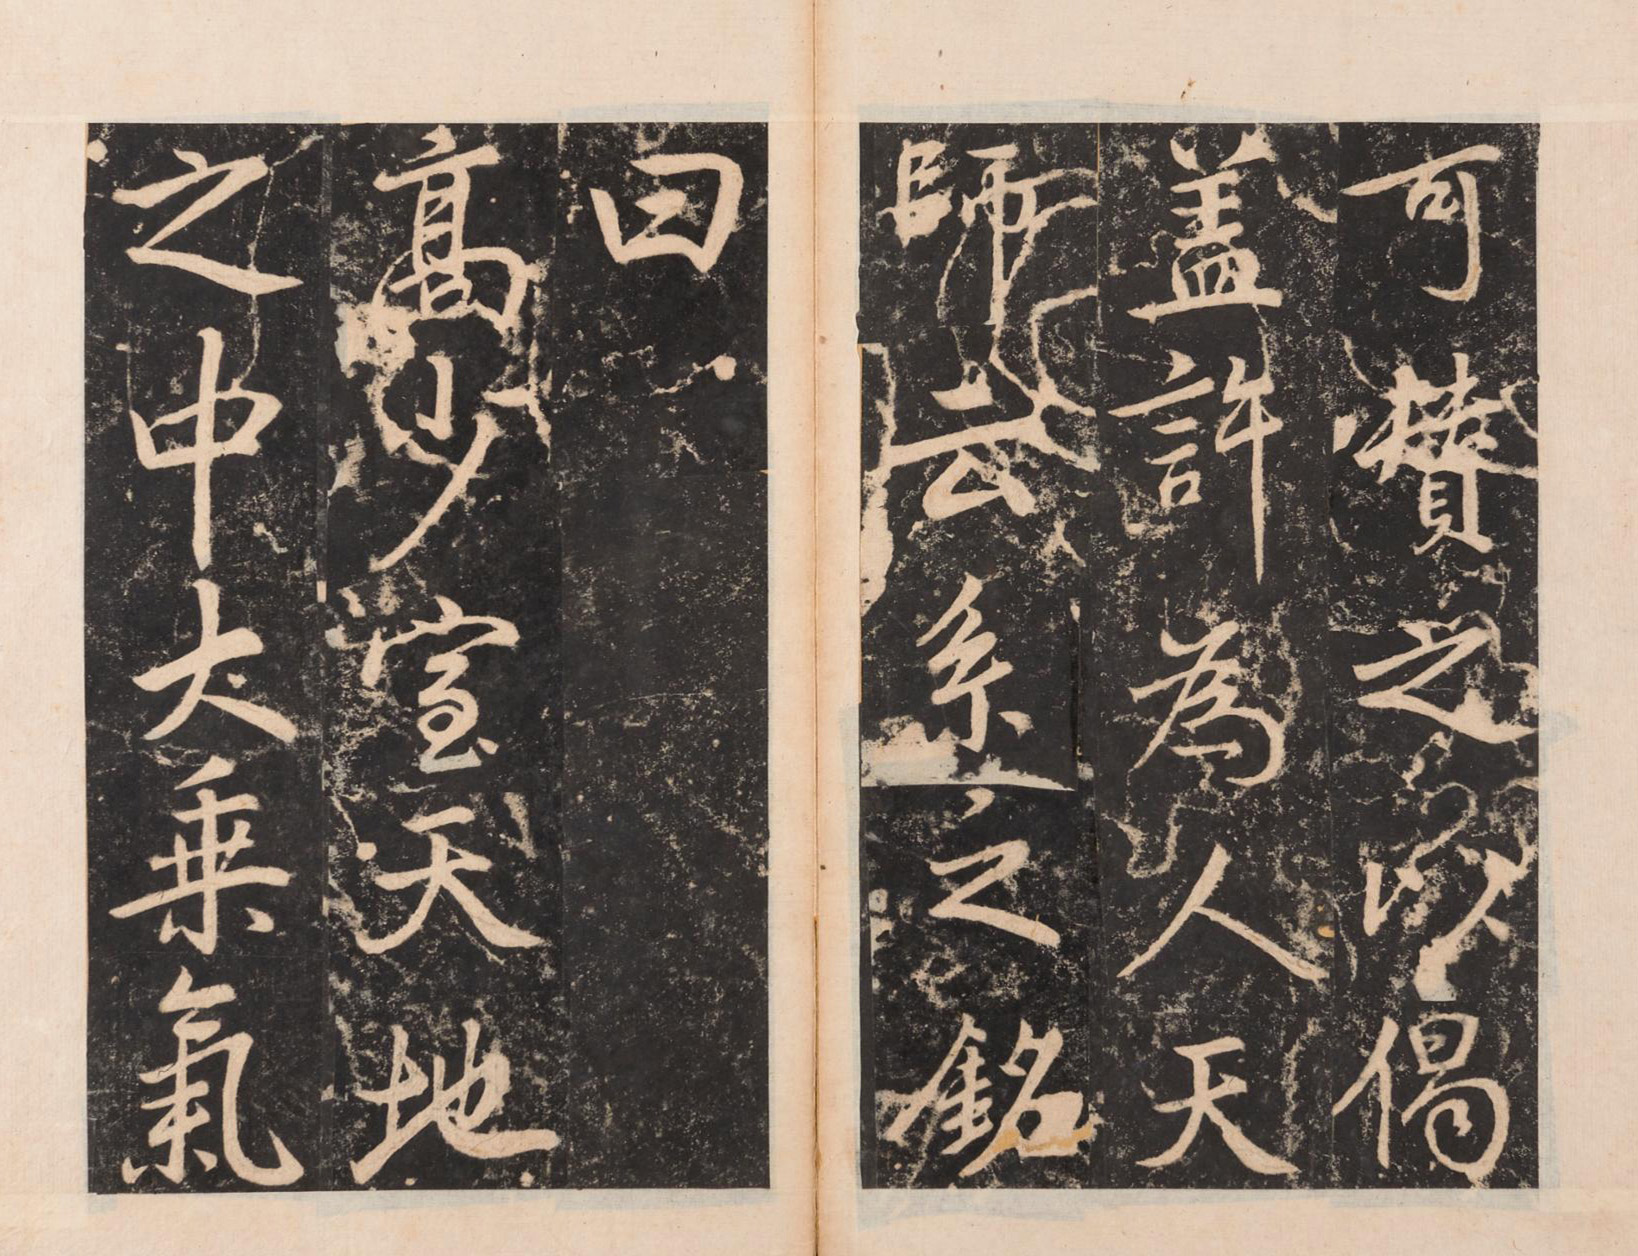 可賛之以偈
盖許為人天
師云系之銘
曰
高少室天地
之中大乗氣